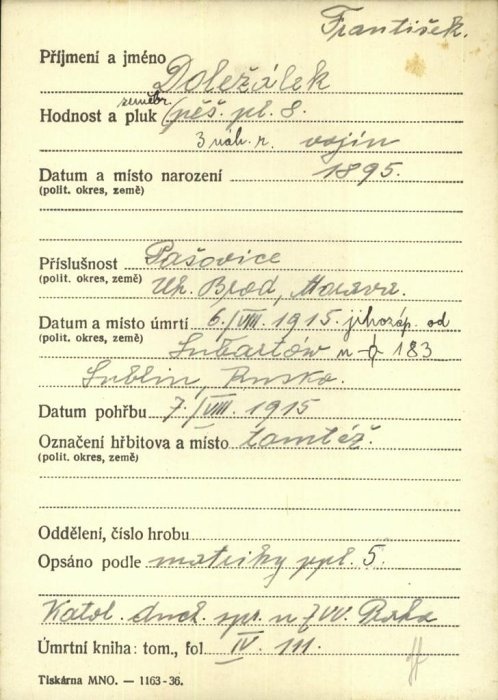 František.
Příjmení a jméno Doležálek
zeměbr.
Hodnost a pluk (pěš. pl. 8.
3 náh. r. vojín
Datum a místo narození 1895.
(polit. okres, země)
Příslušnost Pašovice
(polit. okres, země) Uh. Brod, Morava.
Datum a místo úmrtí 6./VIII. 1915. jihozáp. od
(polit. okres, země) Lubartów 183
Lublin, Rusko.
Datum pohřbu 7./VIII. 1915
Označení hřbitova a místo tamtéž.
(polit. okres, země)
Oddělení, číslo hrobu
Opsáno podle matriky ppl. 5.
Katol. duch. spr. u ZVV. Praha
Úmrtní kniha: tom., fol IV. 111.
Tiskárna MNO. — 1163-36.